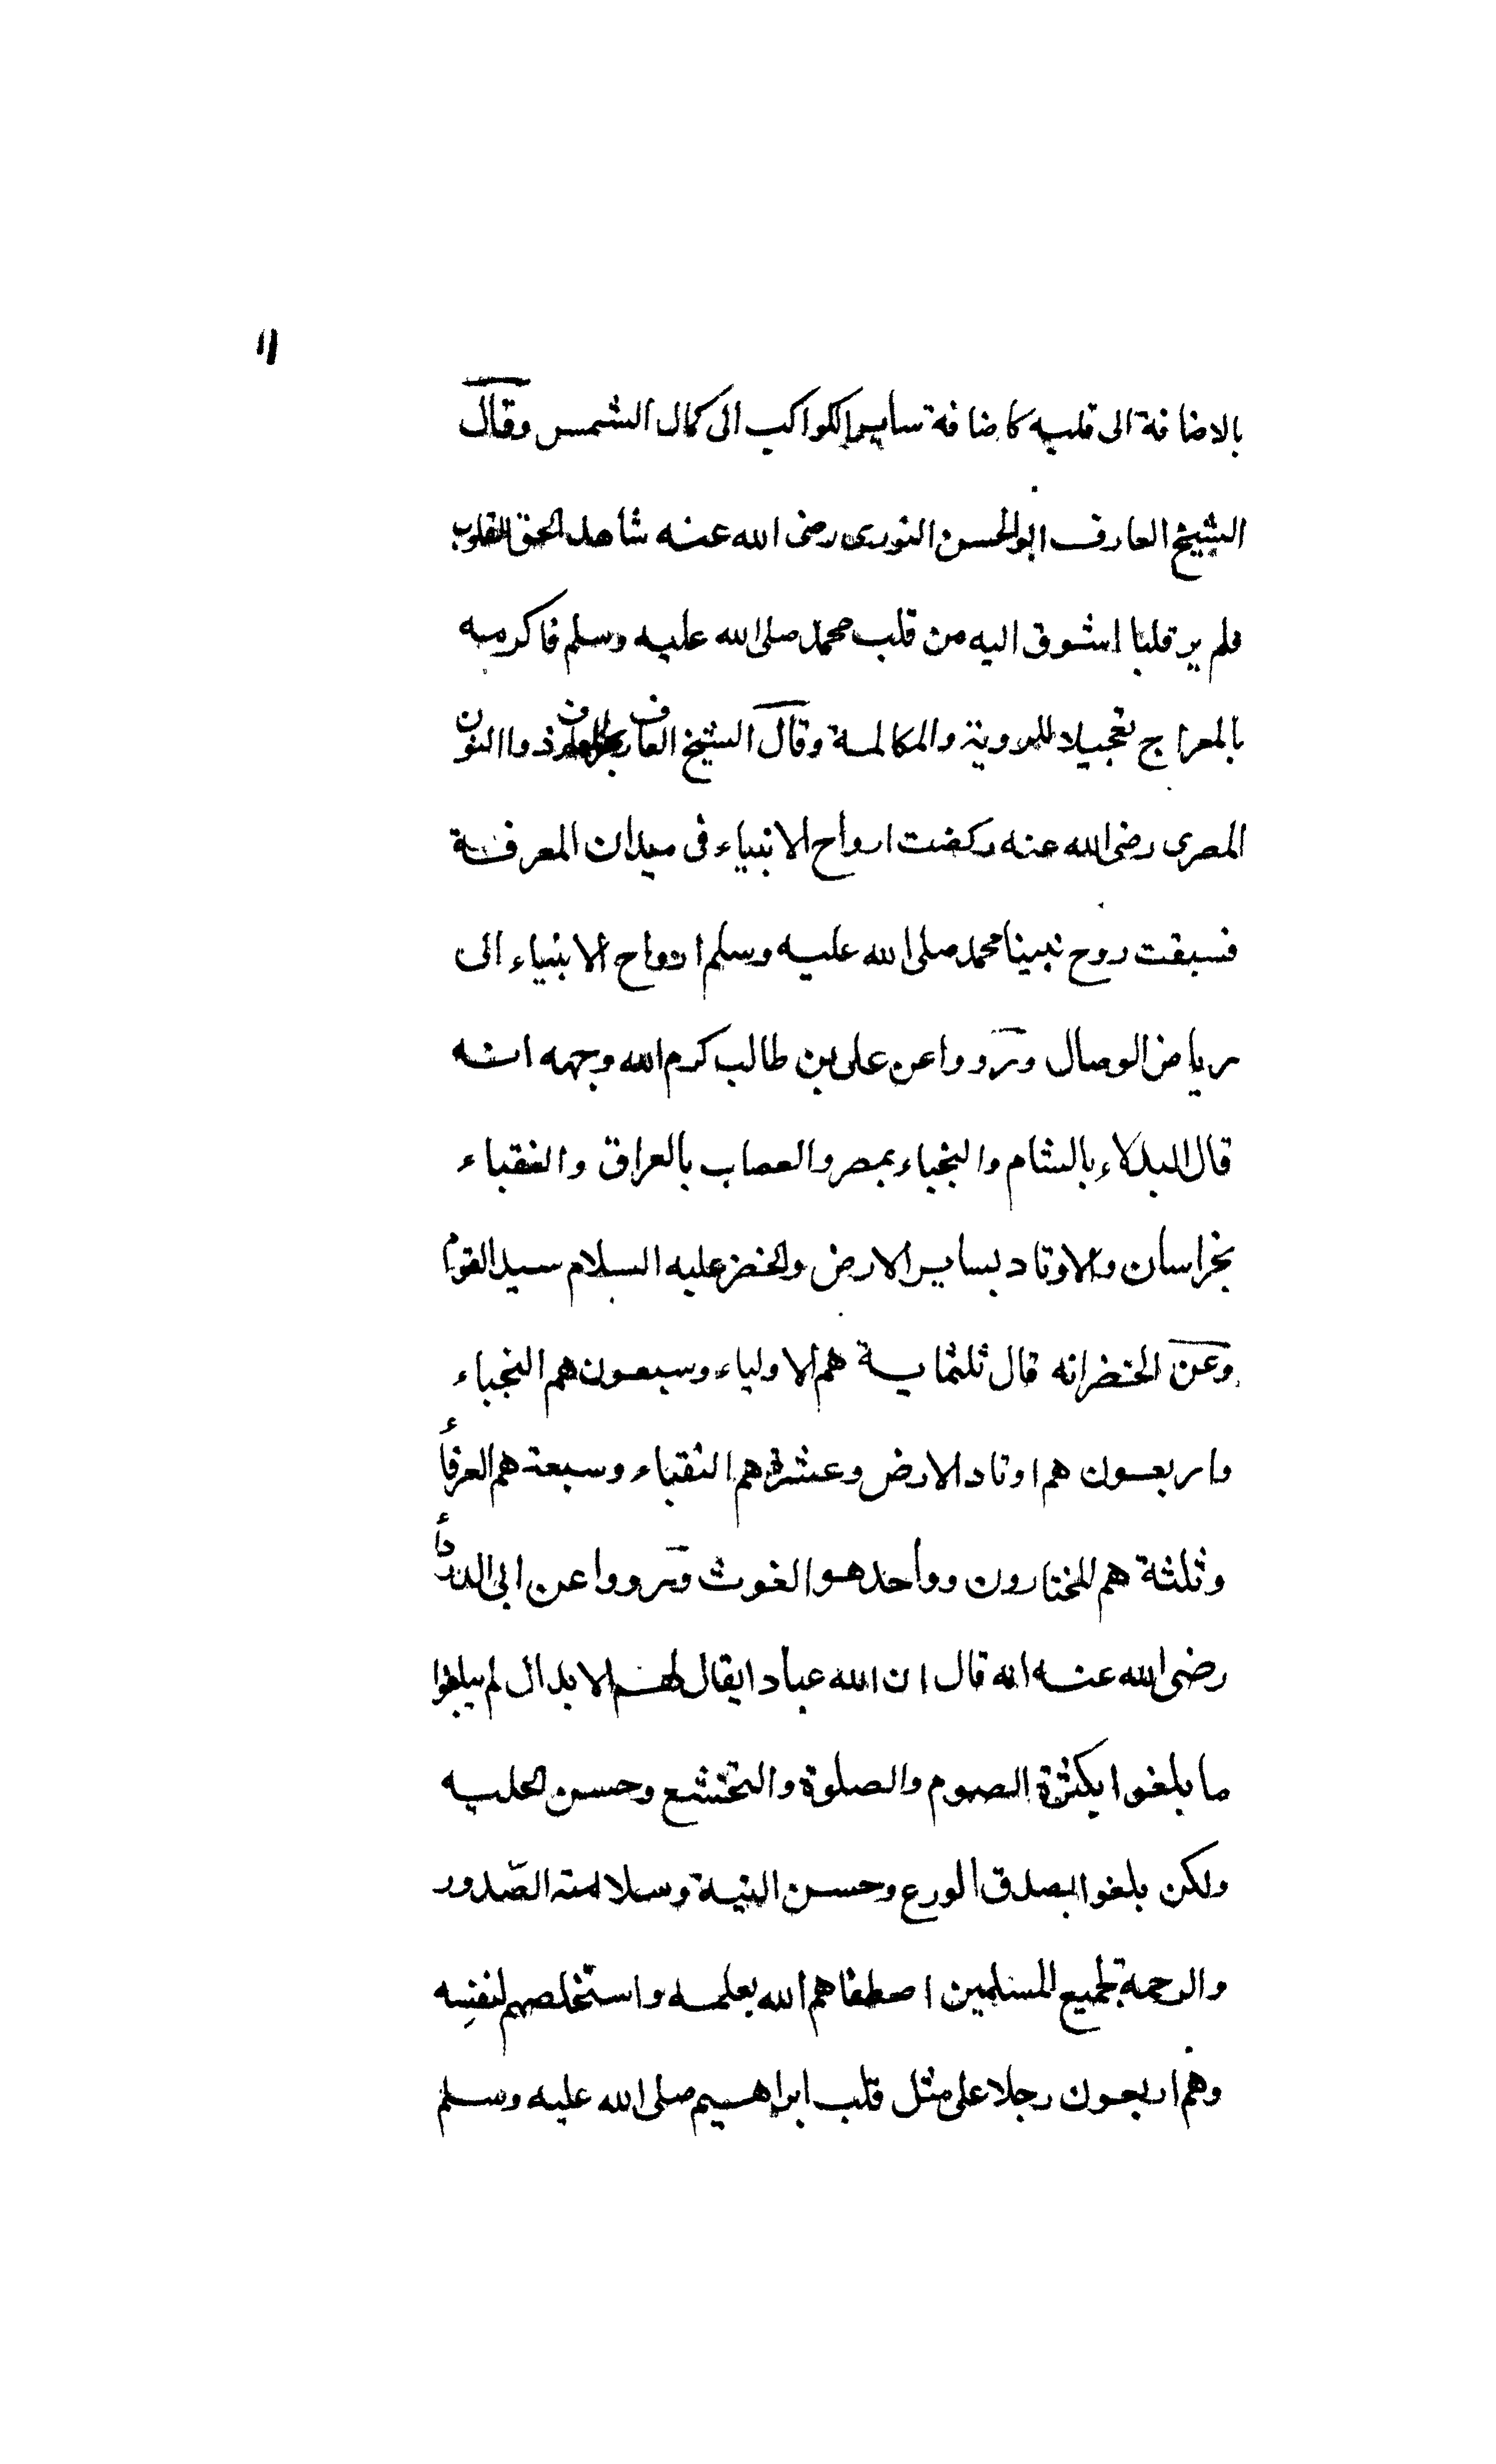 ١١
بالاضافة الى قلبه كاضافة ساير الكواكب الى كمال الشمس وقال
الشيخ العارف ابو الحسن النورى رضى الله عنه شاهد الحق القلوب
فلم ير قلبا اشوق اليه من قلب محمد صلى الله عليه وسلم فاكرمه
بالمعراج تعجيلا للروية والمكالمة وقال الشيخ العارف بحر المعارف ذوا النون
المصرى رضى الله عنه ركضت ارواح الانبياء فى ميدان المعرفة
فسبقت روح نبينا محمد صلى الله عليه وسلم ارواح الانبياء الى
رياض الوصال ورووا عن على بن طالب كرم الله وجهه انه
قال البدلاء بالشام والنجباء بمصر والعصاب بالعراق والنقباء
بخراسان والاوتاد بساير الارض والخضر عليه السلام سيد القوم
وعن الخضر انه قال ثلثماية هم الاولياء وسبعون هم النجباء
واربعون هم اوتاد الارض وعشرة هم النقباء وسبعة هم العرفاء
وثلثة هم المختارون وواحد هو الغوث ورووا عن ابى الدرداء
رضى الله عنه انه قال ان لله عبادا يقال لهم الابدال لم يبلغوا
ما بلغوا بكثرة الصوم والصلوة والتخشع وحسن الحليه
ولكن بلغوا بصدق الورع وحسن النية وسلامة الصّدور
والرحمة لجميع المسلمين اصطفاهم الله بعلمه واستخلصهم لنفسه
وهم اربعون رجلا على مثل قلب ابراهيم صلى الله عليه وسلم